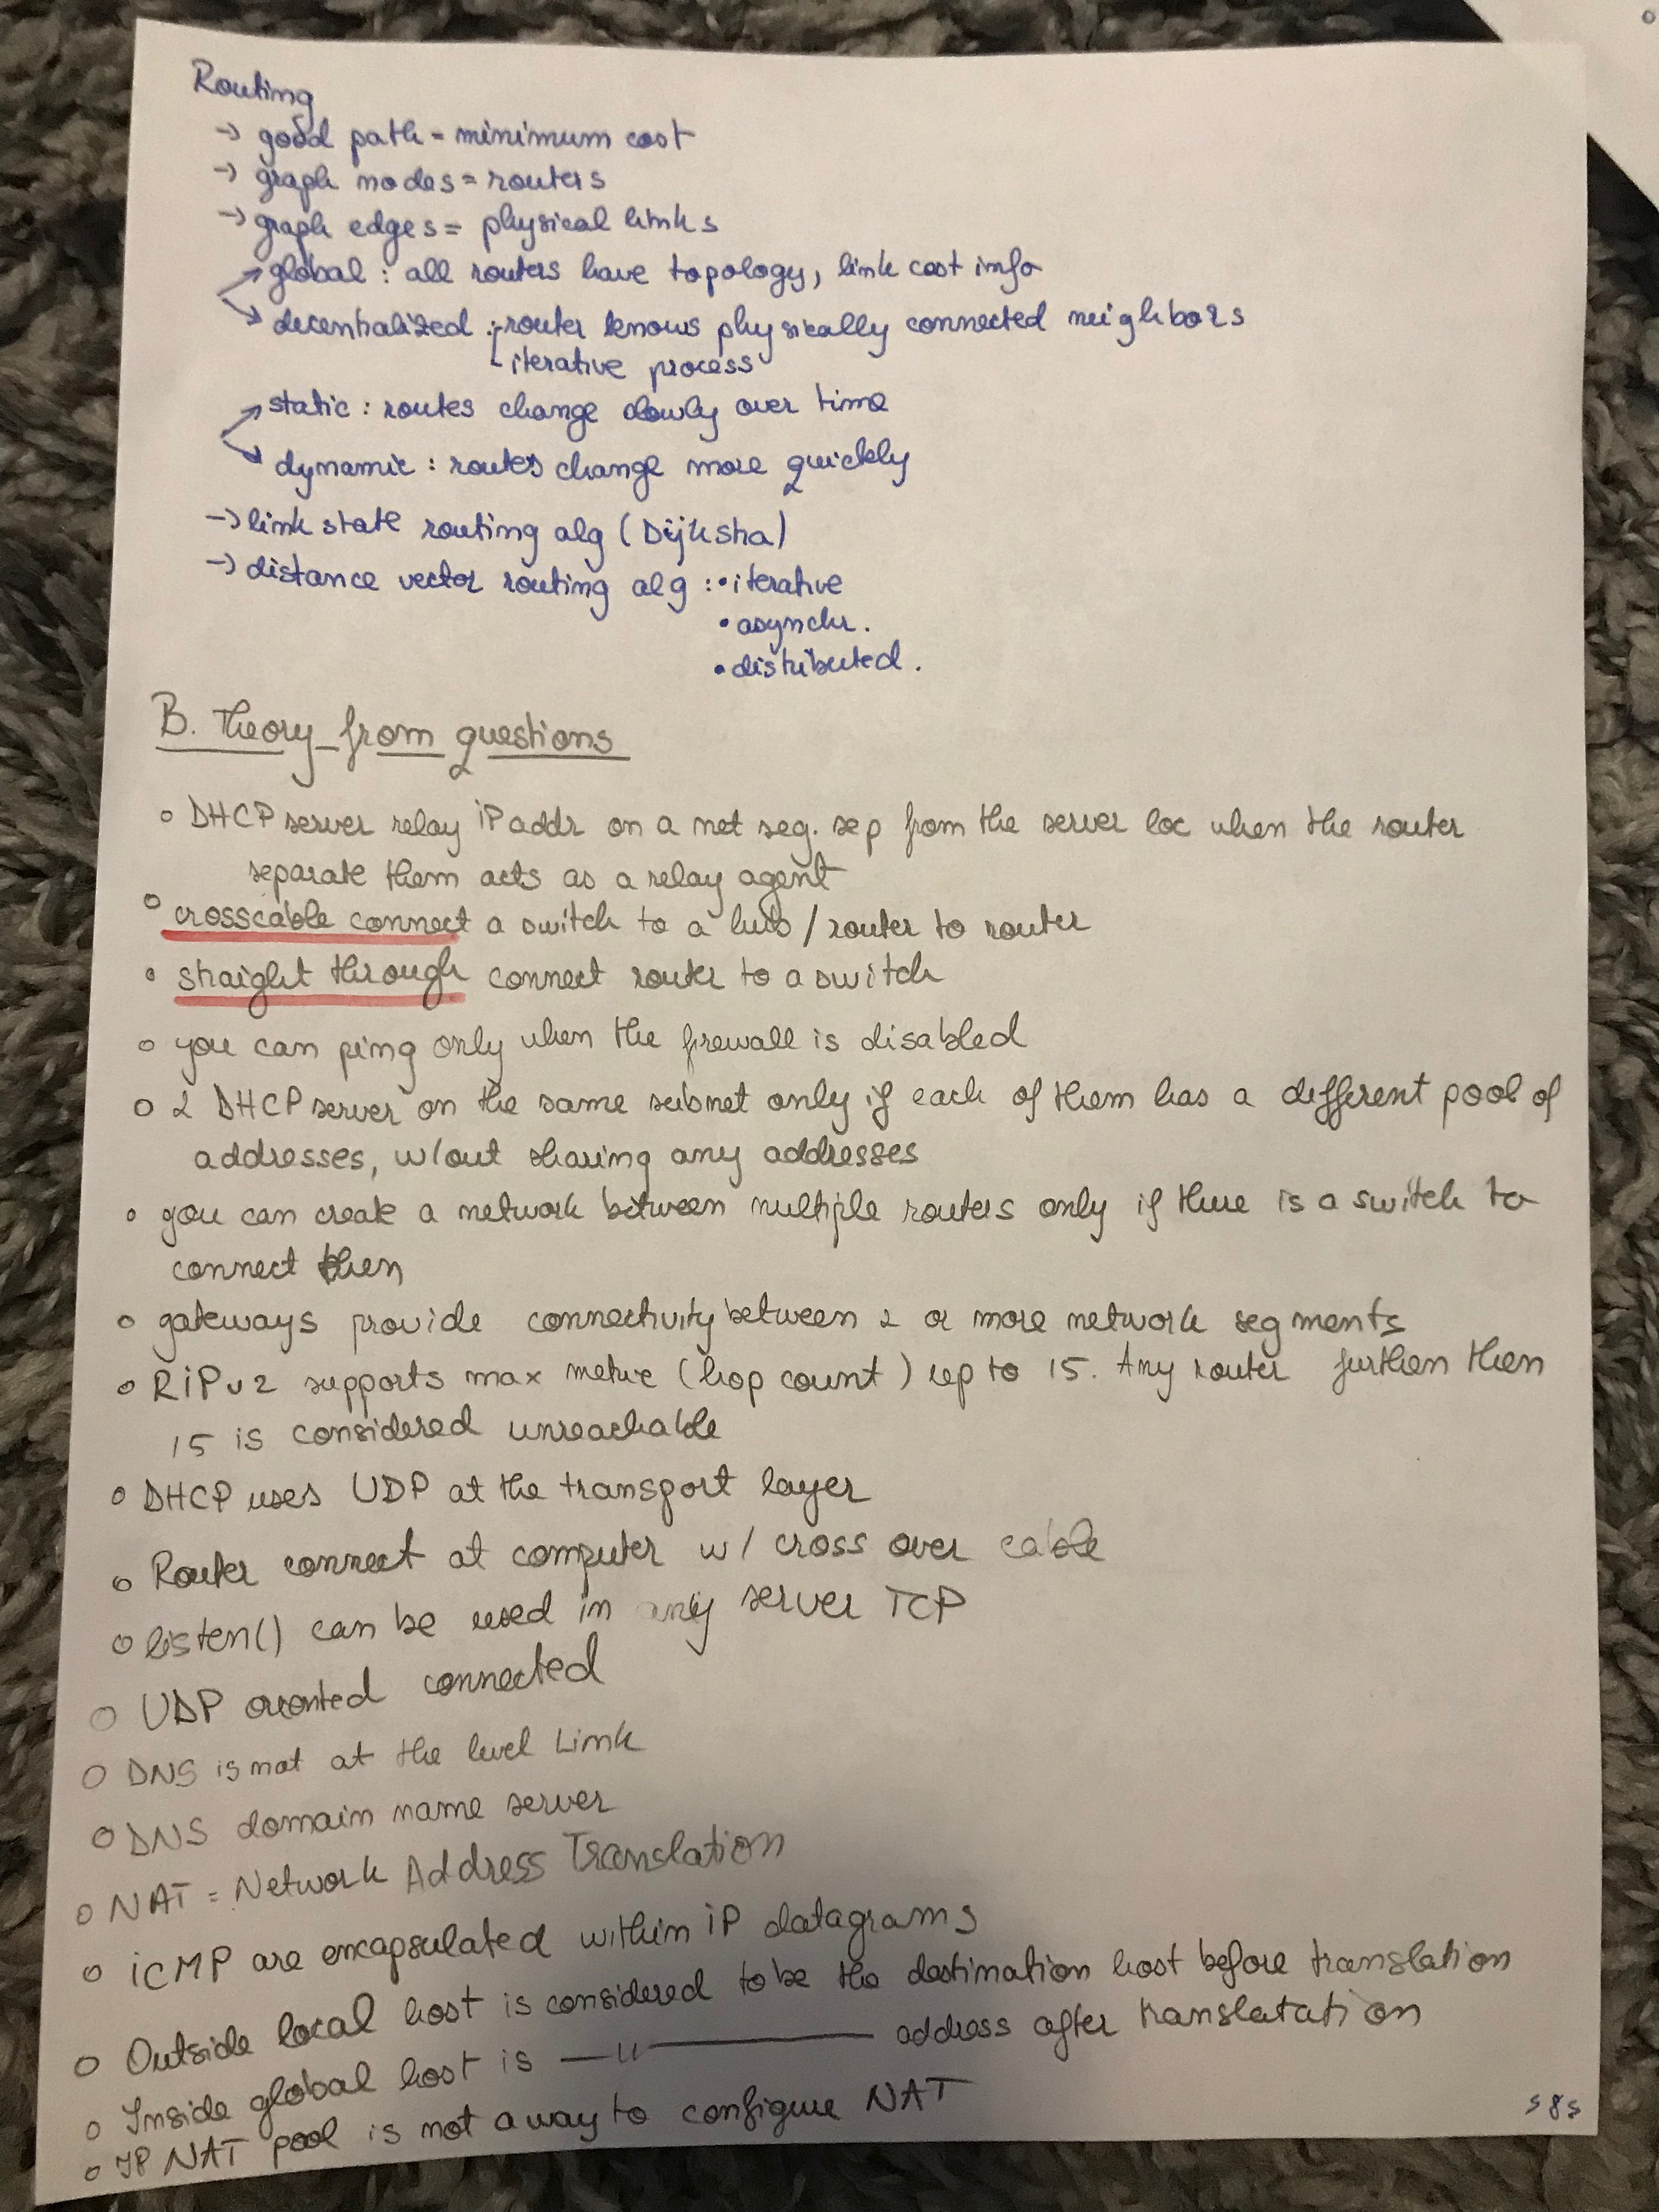 Routing
-> good path = minimum cost
-> graph nodes = routers
-> graph edges = physical links
global : all routers have topology, link cost info
decentralized : - router knows physically connected neighbors
- iterative process
static : routes change slowly over time
dynamic : routes change more quickly
-> link state routing alg (Dijkstra)
-> distance vector routing alg : • iterative
• asynchr.
• distributed.
B. Theory from questions
○ DHCP server relay iP addr on a net seg. sep from the server loc when the router
separate them acts as a relay agent
○ crosscable connect a switch to a hub / router to router
○ straight through connect router to a switch
○ you can ping only when the firewall is disabled
○ 2 DHCP server on the same subnet only if each of them has a different pool of
addresses, w/out sharing any addresses
○ you can create a network between multiple routers only if there is a switch to
connect then
○ gateways provide connectivity between 2 or more network segments
○ RiPv2 supports max metric (hop count) up to 15. Any router further then
15 is considered unreachable
○ DHCP uses UDP at the transport layer
○ Router connect at computer w/ cross over cable
○ listen() can be used in any server TCP
○ UDP oriented connected
○ DNS is not at the level Link
○ DNS domain name server
○ NAT = Network Address Translation
○ iCMP are encapsulated within iP datagrams
○ Outside local host is considered to be the destination host before translation
○ Inside global host is —— " ———— address after translatation
○ IP NAT pool is not a way to configure NAT